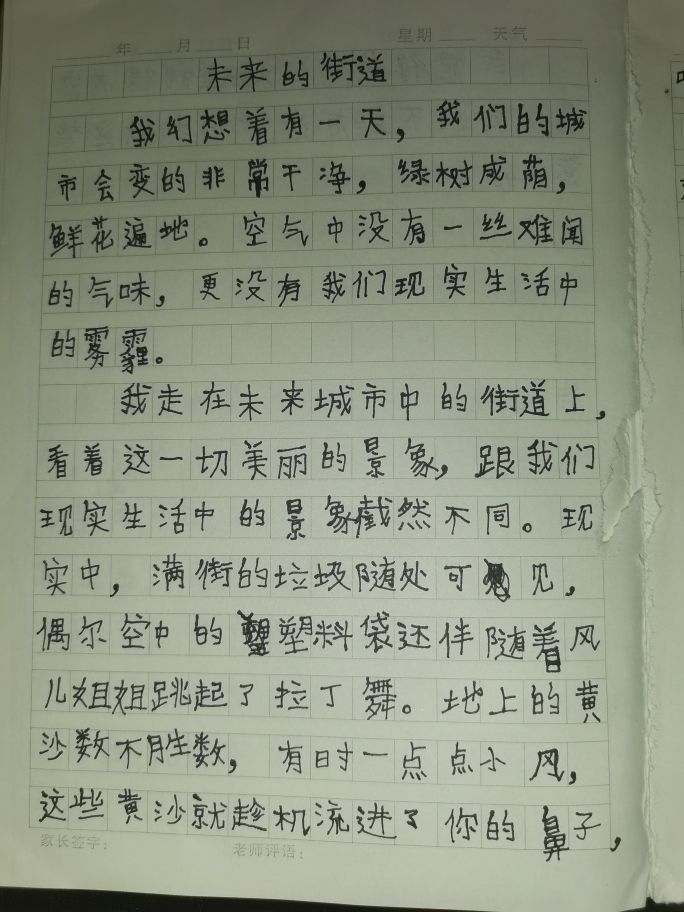 年 月 日 星期 天气
未来的街道
我幻想着有一天，我们的城
市会变的非常干净，绿树成荫，
鲜花遍地。空气中没有一丝难闻
的气味，更没有我们现实生活中
的雾霾。
我走在未来城市中的街道上，
看着这一切美丽的景象，跟我们
现实生活中的景象截然不同。现
实中，满街的垃圾随处可见，
偶尔空中的塑料袋还伴随着风
儿姐姐跳起了拉丁舞。地上的黄
沙数不胜数，有时一点点小风，
这些黄沙就趁机流进了你的鼻子，
家长签字： 老师评语：